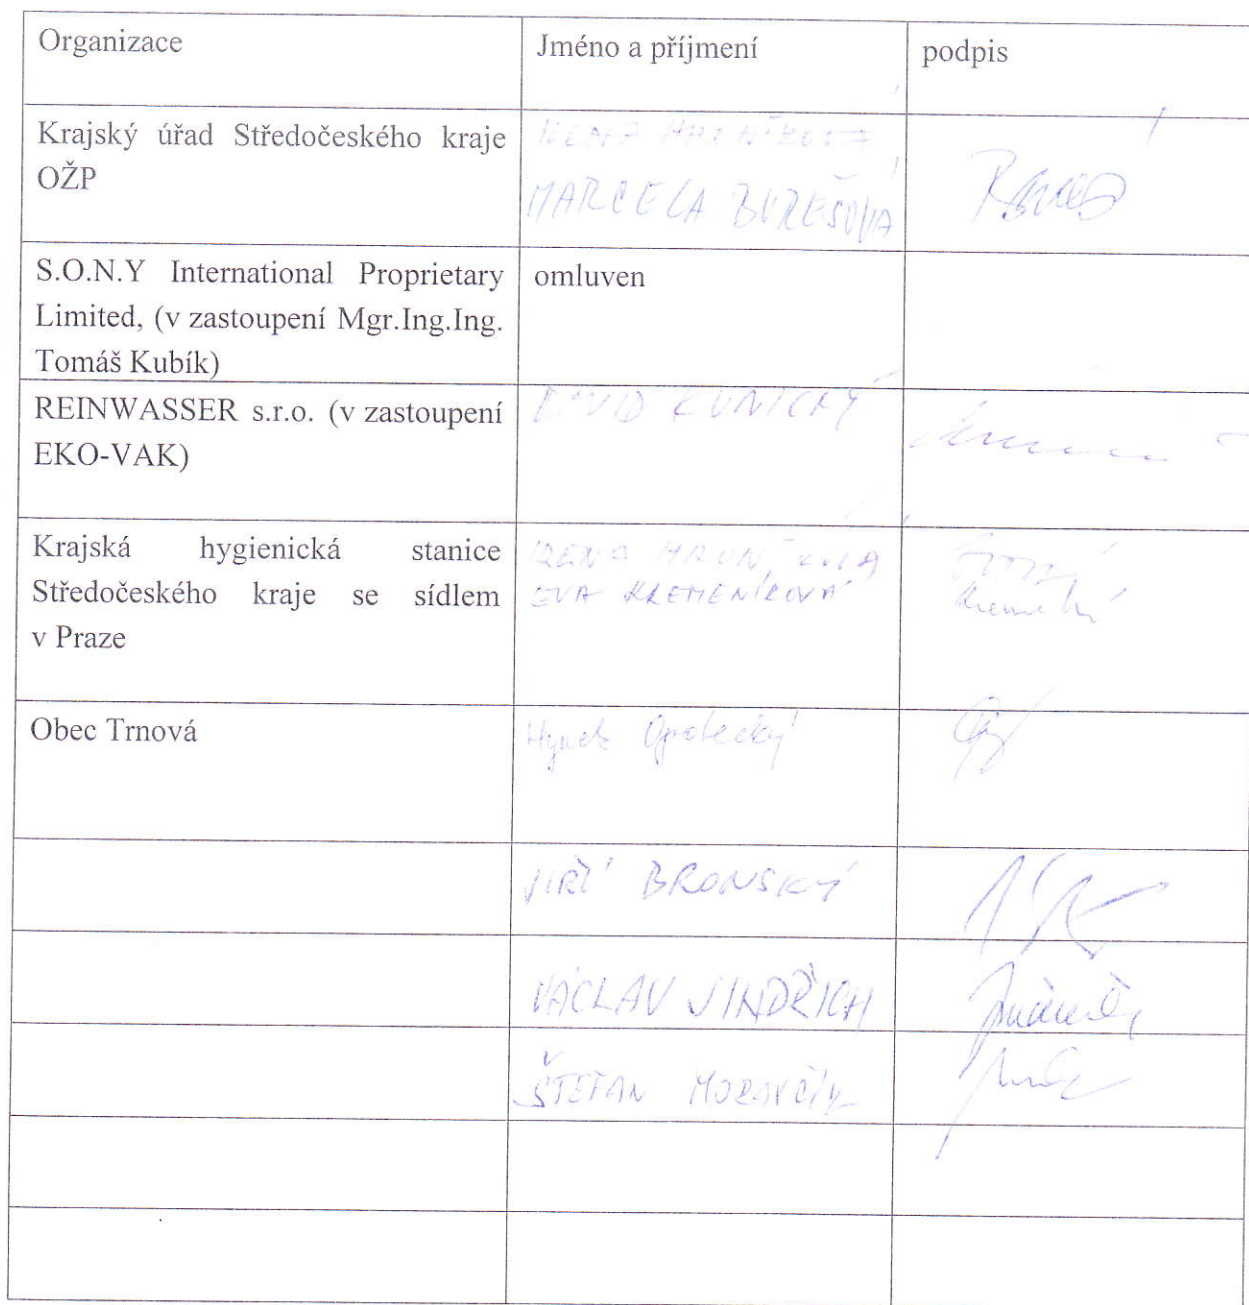 Organizace
Jméno a příjmení
podpis
Krajský úřad Středočeského kraje
OŽP
MARCELA BUREŠOVÁ
S.O.N.Y International Proprietary
Limited, (v zastoupení Mgr.Ing.Ing.
Tomáš Kubík)
omluven
REINWASSER s.r.o. (v zastoupení
EKO-VAK)
DAVID KUNICKÝ
Krajská hygienická stanice
Středočeského kraje se sídlem
v Praze
EVA KREMENÍKOVÁ
Obec Trnová
Hynek Opolecký
JIŘÍ BRONSKÝ
VÁCLAV JINDŘICH
ŠTEFAN MORAVČÍK